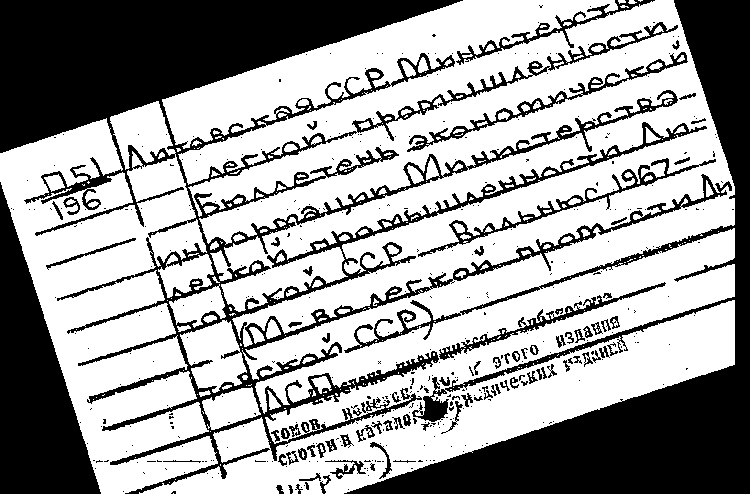 П51
196
Литовская ССР. Министерство
легкой промышленности
Бюллетень экономической
информации Министерства
легкой промышленности Ли-
товской ССР. Вильнюс, 1967-
(М-во легкой пром-сти Ли
товской ССР)
ЛСП
Перечень имеющихся в библиотеке
томов, этого издания
смотри в каталоге периодических изданий